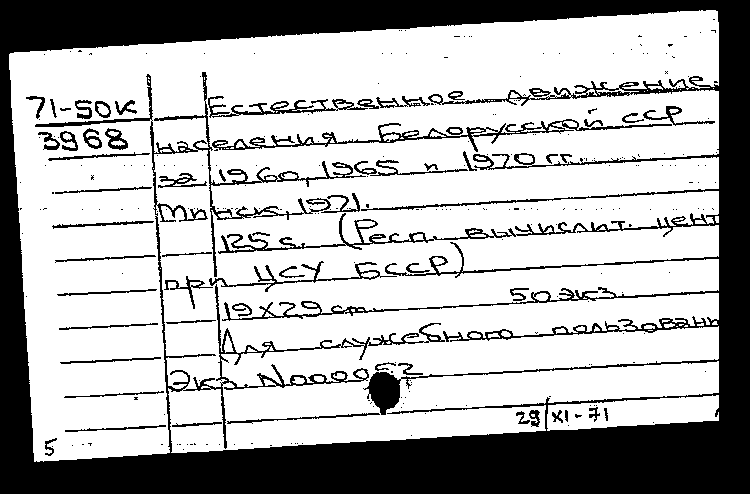 71-50к
3968
Естественное движение
населения Белорусской ССР
за 1960, 1965 и 1970 гг.
Минск, 1971.
125 с. (Респ. вычислит. цент
при ЦСУ БССР)
19х29 см. 50 экз.
Для служебного пользован
Экз. N000052
29/XI-71
5